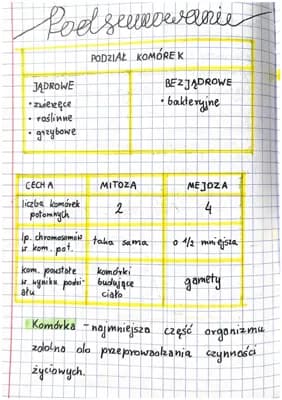 Podsumowanie
PODZIAŁ KOMÓREK
JĄDROWE
• zwierzęce
• roślinne
• grzybowe
BEZJĄDROWE
• bakteryjne
CECHA MITOZA MEJOZA
liczba komórek
potomnych
2 4
lp. chromosomów
w kom. pot.
taka sama o 1/2 mniejsza
kom. powstałe
w wyniku podzi-
ału
komórki
budujące
ciało
gamety
Komórka - najmniejsza część organizmu
zdolna do przeprowadzania czynności
życiowych.